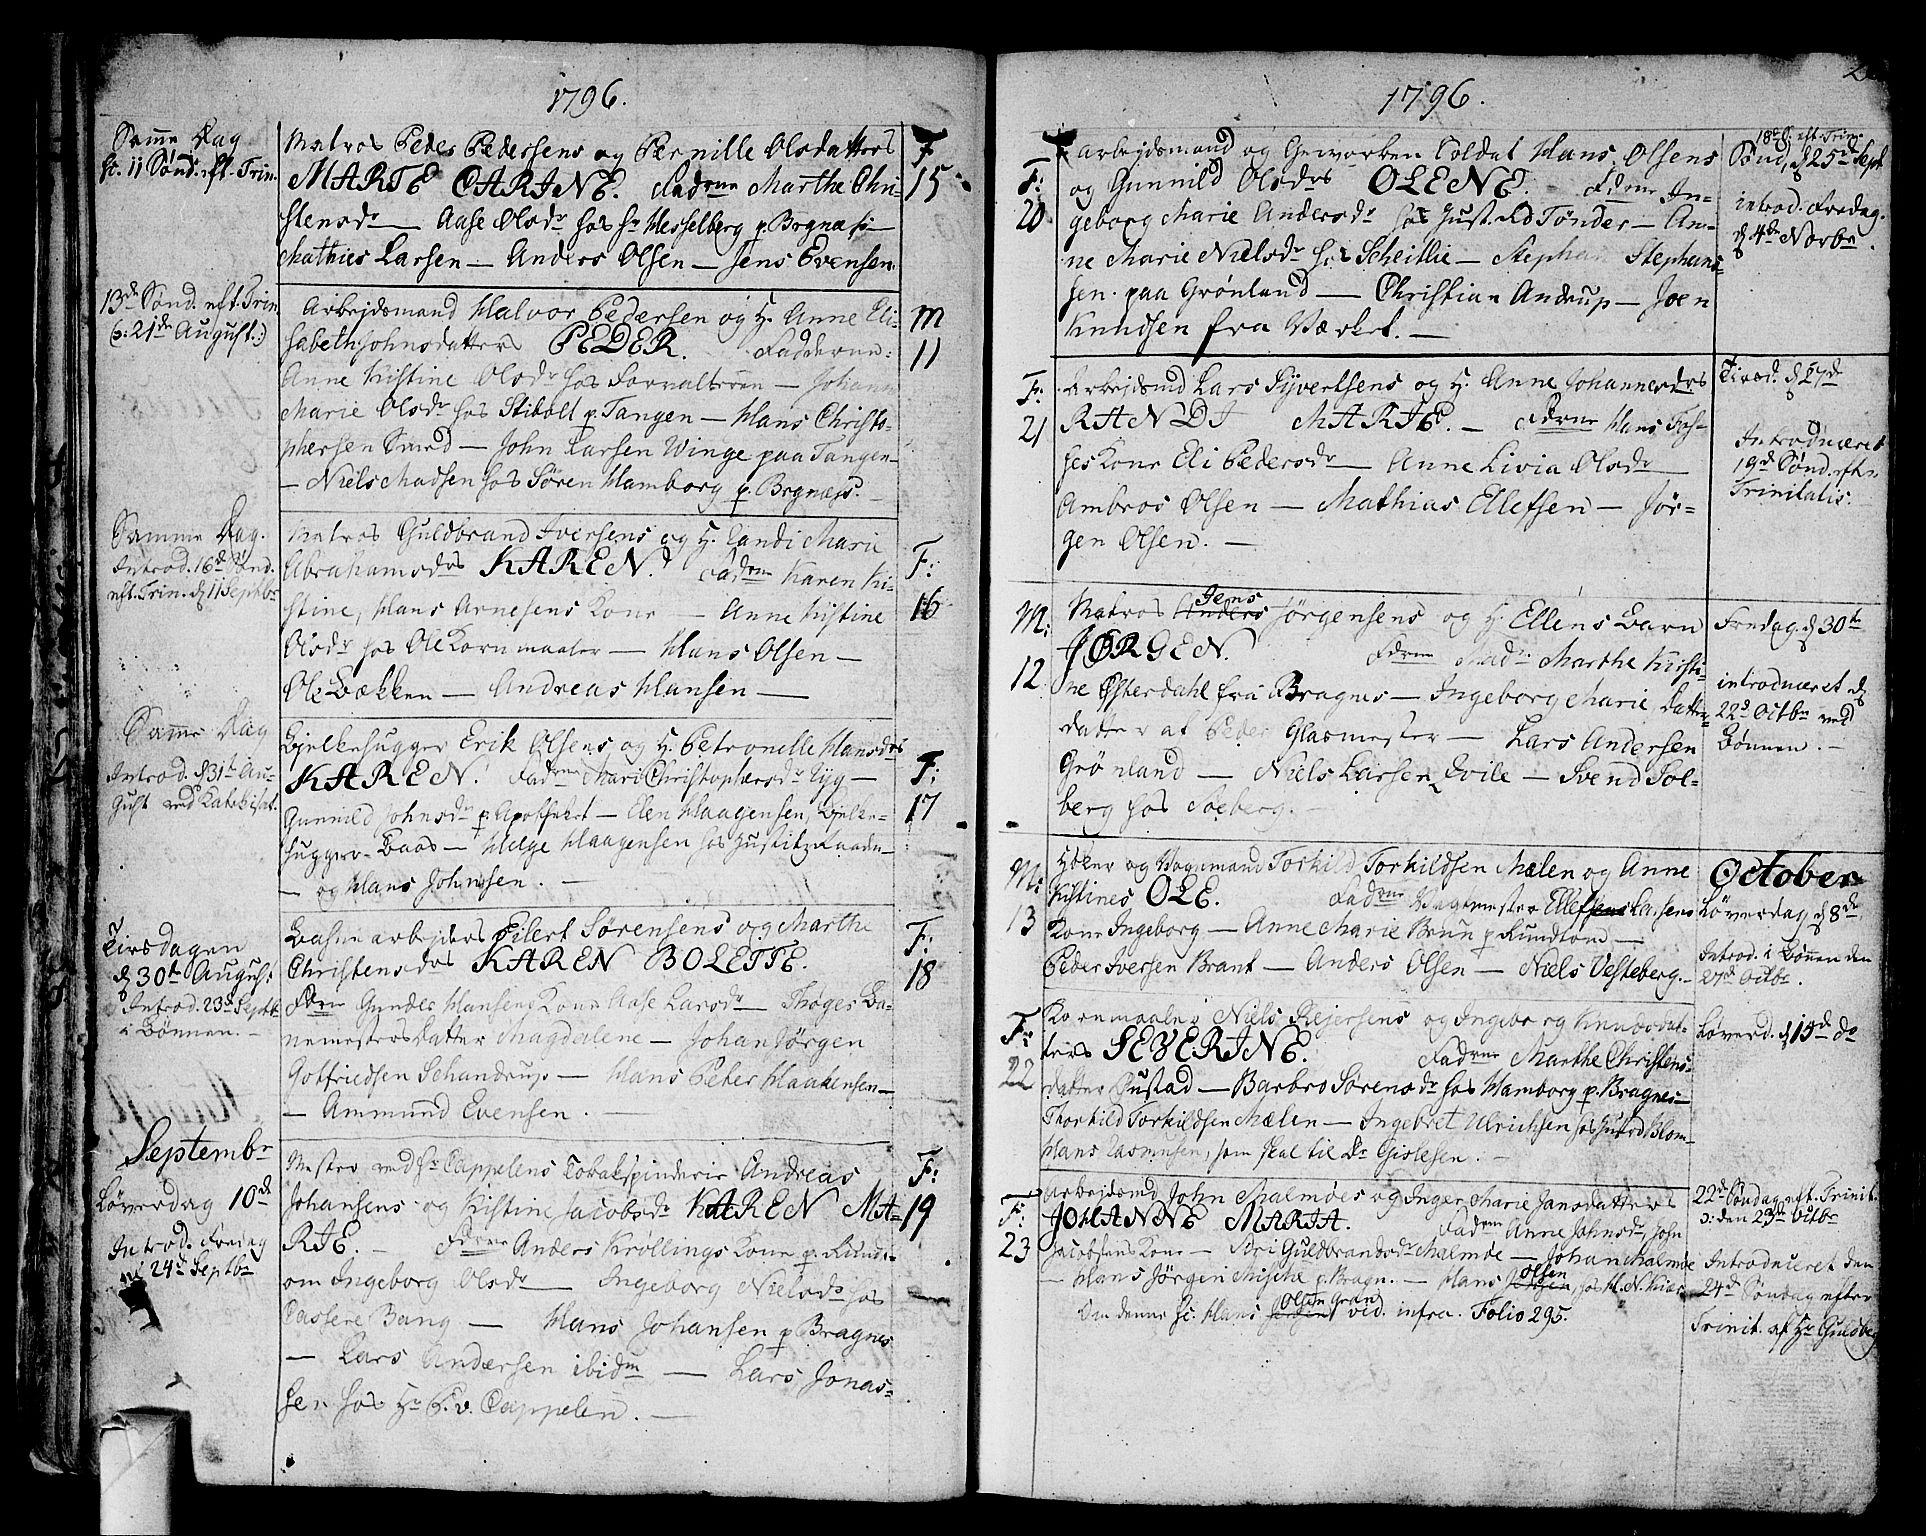 1796.
Samme Dag
sc. 11 Sønd. eft. Trin.
Matros Peder Pedersens og Pernille Olsdatters
MARTE CARINE. Fadrne Marthe Chri-
stensdr — Aase Olsdr hos Hr Hesselberg p. Bragnæs —
Mathies Larsen — Anders Olsen — Jens Evensen
F
15
13de Sønd. eft. Trin
(ɔ: 21de August.)
Arbejdsmand Halvor Pedersen og H. Anne Eli-
sabeth Johnsdatters PEDER. Fadderne:
Anne Kistine Olsdr hos Forvalteren — Johanne
Marie Olsdr hos Stibolt p. Tangen — Hans Christo-
phersen Smed — John Larsen Winge paa Tangen
— Niels Madsen hos Søren Hamborg p. Brgnæs. —
M
11
Samme Dag.
Introd. 16de Sønd.
eft. Trin. d 11 Septbr
Matros Guldbrand Iversens og H. Randi Marie
Abrahamsdrs KAREN. Fadrne Karen Ki-
stine, Hans Arnesens Kone — Anne Kistine
Olsdr hos Ole Kornmaaler — Hans Olsen —
Ole Bækken — Andreas Hansen —
F:
16
Samme Dag
Introd. d 31te Au-
gust ved Katekisat.
Bjelkehugger Erik Olsens og H. Petronelle Hansdrs
KAREN. Fadrne Mari Christophersdr Ryg —
Gunnild Johnsdr p. Apotheket — Elen Haagensen, Bjelke-
hugger-Baas — Helge Haagensen hos Justitz Raaden
— og Hans Johnsen. —
F:
17
Tirsdagen
d 30te August
Introd. 23de Septbr
i Bønnen. —
Bastuearbejders Eilert Sørensens og Marthe
Christensdrs KAREN BOLETTE.
Fdrne Gunder Hansens Kone Aase Larsdr — Thøger Ba-
nemesters datter Magdalene — Johan Jørgen
Gotfriedsen Schandrup — Hans Peter Haakensen —
— Ammund Evensen. —
F:
18
Septembr
Løverdag 10de
Introd. Fredag
d 24de Septbr
Mester ved Hr Cappelens Tobakspinderie Andreas
Johansens og Kistine Jacobsdr KAREN MA-
RIE. — Fdrne Anders Krøllings Kone p. Rundt-
om Ingeborg Olsdr — Ingeborg Nielsdr hos
Cassere Bang — Hans Johansen p Bragnes
— Lars Andersen ibidm — Lars Jonas-
sen hos Hr P. v. Cappelen. —
F:
19
1796.
F:
20
Arbejdsmand og Geworben Soldat Hans Olsens
og Gunnild Olsdrs OLENE. Fdrne In-
geborg Marie Andersdr hos Just. Rd Tønder — An-
ne Marie Nielsdr hos Scheitlie — Stephan Stephens-
sen paa Grønland — Christian Andrup — Joen
Knudsen fra Værket. —
18de S. eft. Trin.
Sønd. d 25de Sept
introd. Fredag.
d 4de Novbr.
F:
21
Arbejdsmd Lars Syvertsens og H. Anne Johannesdrs
RANDI MARIE. — Fdrne Hans Tos-
ses Kone Eli Pedersdr — Anne Livia Olsdr —
Ambros Olsen — Mathias Ellefsen — Jør-
gen Olsen. —
Tirsd. d 27de
Introduceret
19de Sønd. efter
Trinitatis.
M:
12
Jens
Matros Anders Jørgensens og H. Ellens Barn
JØRGEN. Fdrne Madm Marthe Kisti-
ne Østerdahl fra Bragnes — Ingeborg Marie Datter
datter af Peder Glasmester — Lars Andersen
Grønland — Niels Larsen Hvile — Svend Sol-
berg hos Soeberg. —
Fredag d 30te
introduceret d
22de Octbr ved
Bønnen. —
M:
13
Høker og Vognmand Torkild Torkildsen Mælen og Anne
Kistines OLE. Fadrne Vagtmester Ellefsens Larsens
Kone Ingeborg — Anne Marie Brun p Rundtom —
Peder Iversen Brant — Anders Olsen — Niels Vesteberg. —
October
Løverdag d 8de
Introd. i Bønnen den
27de Octbr.
F:
22
Kornmaaler Niels Rejersens og Ingeborg Knudsdat-
ters SEVERINE. Fadrne Marthe Christens-
datter Rustad — Barbro Sørensdr hos Hamborg p. Bragnes —
Thorkild Torkildsen Mælen — Ingebret Ulrichsen hos Huard Blom —
Hans Rasmusen, som skal til Dr Gislesen. —
Løverd. d 15de do
F:
23
Arbejdsmd John Malmöes og Inger Marie Jansdatters
JOHANNE MARIA. Fadrne Anne Jahnsdr, John
Jacobsens Kone — Siri Guldbrandsdr Malmöe — Johan Malmöe
— Hans Jörgen Mische p. Bragn. — Hans Jörgen Olsen, hos H. N. Kiær
Om denne sc. Hans Jörgen Olsen Gran vid. infra. Folio 295.
22de Søndag eft. Trinit.
ɔ: den 23de Octbr
Introduceret den
24de Søndag efter
Trinit. af Hr Guldberg